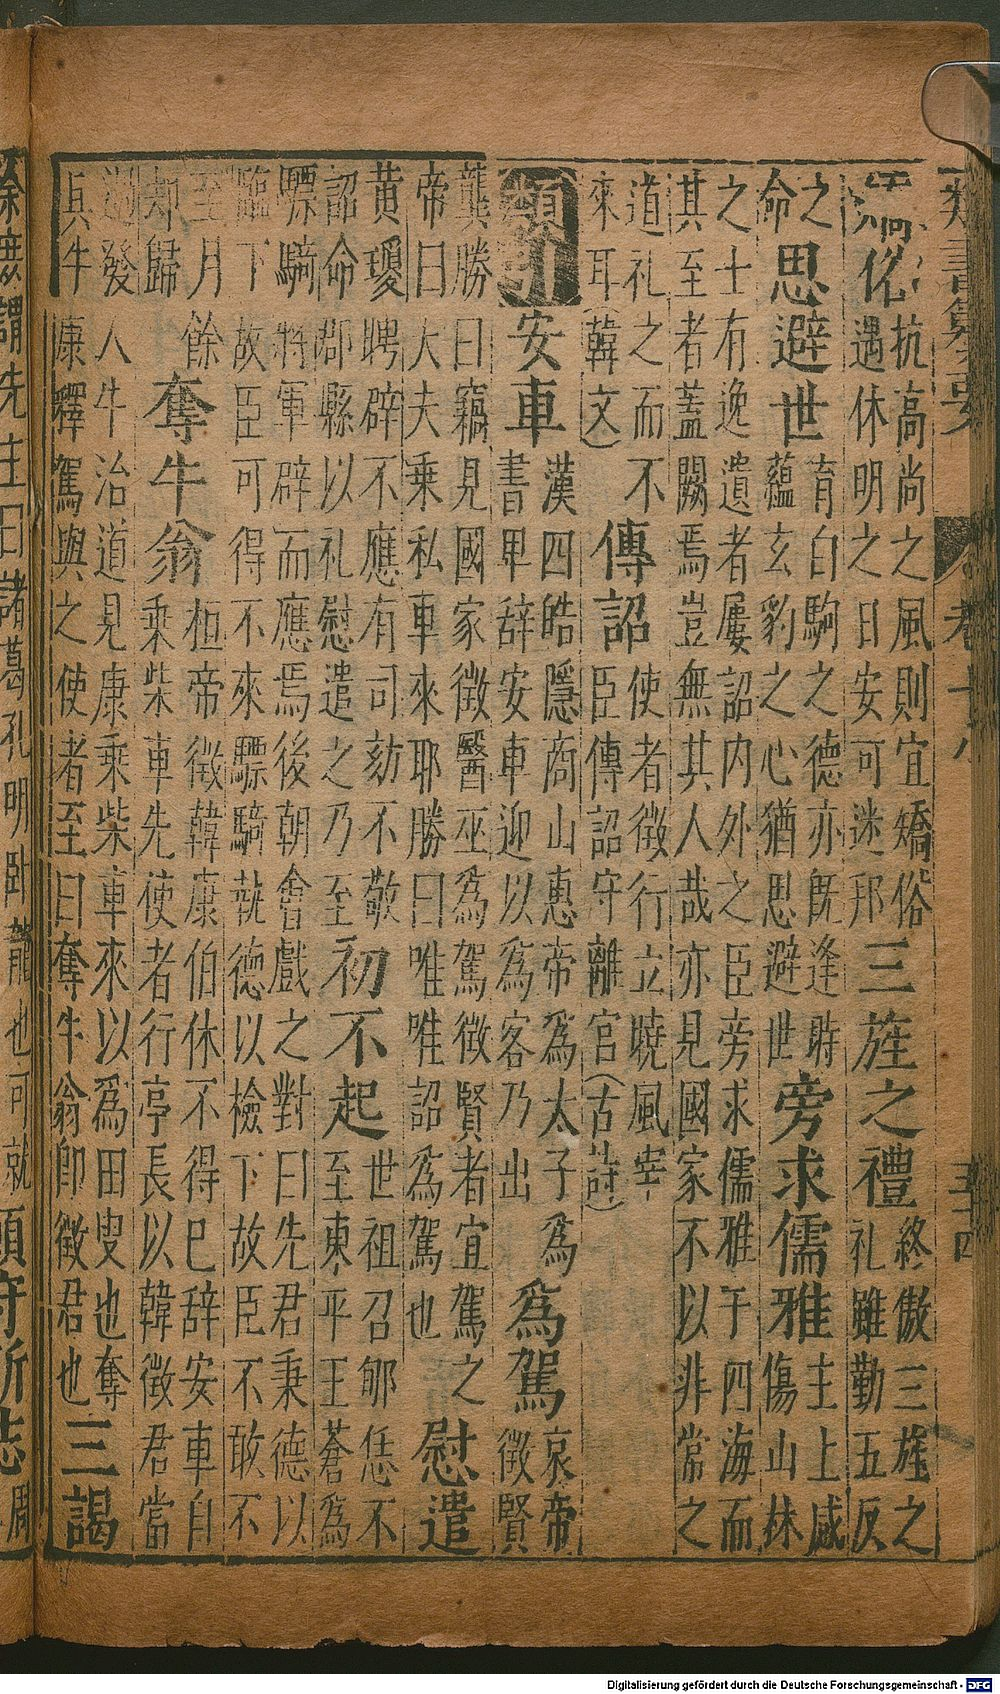 類書纂要 卷十八 五十四
抗高尚之風則宜矯俗
遇休明之日安可迷邦
三旌之禮
終傲三旌之
礼雖勤五反
之
命
思避世
育白駒之德亦既逢時
蘊玄豹之心猶思避世
旁求儒雅
主上感
傷山林
之士有逸遺者屢詔内外之臣旁求儒雅于四海而
其至者蓋闕焉豈無其人哉亦見國家不以非常之
道礼之而不
來耳(韓文)
傳詔
使者徵行立曉風宰
臣傳詔守離官(古詩)
類引
安車
漢四皓隱商山惠帝為太子為
書卑辞安車迎以為客乃出
為駕
哀帝
徵賢
龔勝曰竊見國家徵醫巫為駕徵賢者宜駕之
帝曰大夫乗私車來耶勝曰唯唯詔為駕也
慰遣
黄瓊聘辟不應有司劾不敬
詔命郡縣以礼慰遣之乃至
初不起
世祖召郇恁不
至東平王蒼為
驃騎將軍辟而應焉後朝會戲之對曰先君秉德以
臨下故臣可得不來驃騎執德以檢下故臣不敢不
至月餘
却歸
奪牛翁
桓帝徵韓康伯休不得已辞安車自
乗柴車先使者行亭長以韓徵君當
過發人牛治道見康乗柴車來以為田叟也奪
其牛康釋駕與之使者至曰奪牛翁即徵君也
三謁
徐庶謂先主曰諸葛孔明卧龍也可就
守所志
周
Digitalisierung gefördert durch die Deutsche Forschungsgemeinschaft - DFG